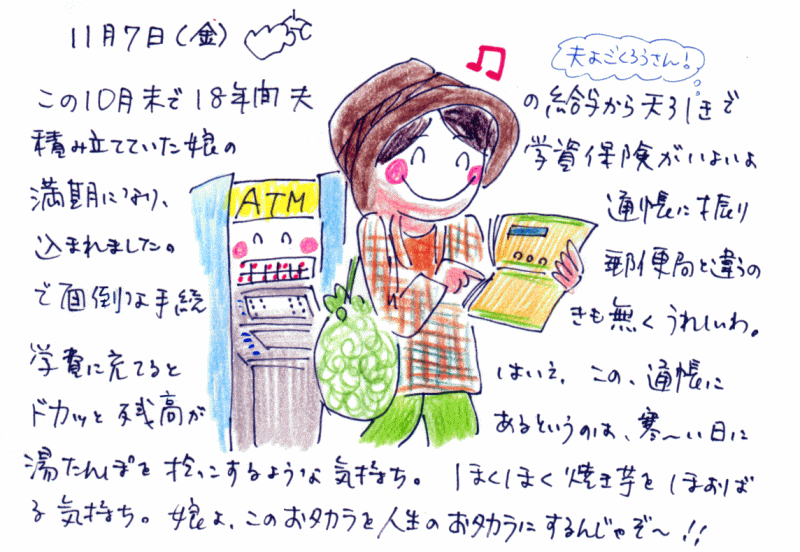 11月7日(金)
夫よごくろうさん!
この10月末で18年間夫の給与から天引きで
積み立てていた娘の学資保険がいよいよ
満期になり、通帳に振り
込まれました。郵便局と違うの
で面倒な手続きも無くうれしいわ。
ATM
学費に充てるとはいえ、この、通帳に
ドカッと残高があるというのは、寒〜い日に
湯たんぽを抱っこするような気持ち。ほくほく焼き芋をほおば
る気持ち。娘よ、このおタカラを人生のおタカラにするんじゃぞ〜!!